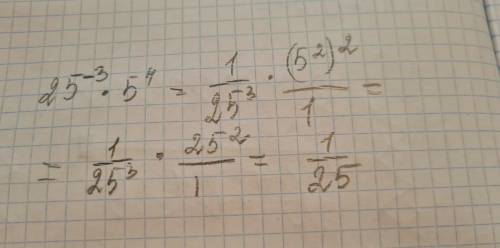 25⁻³ · 5⁴ = 1/25³ · (5²)²/1 =
= 1/25³ · 25²/1 = 1/25